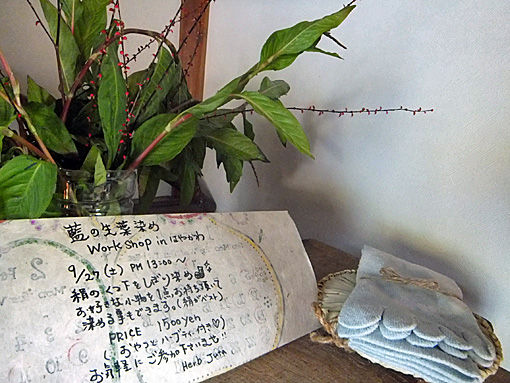 藍の生葉染め
Work shop in はやかわ
9/27(土) PM 13:00〜
絹のくつ下をしぼり染め
お好きな小物を1点お持ち頂いて
染める事もできます。(絹がベスト)
PRICE 1500yen
(おやつとハーブティー付き♡)
お気軽にご参加下さいませ!!
Herb